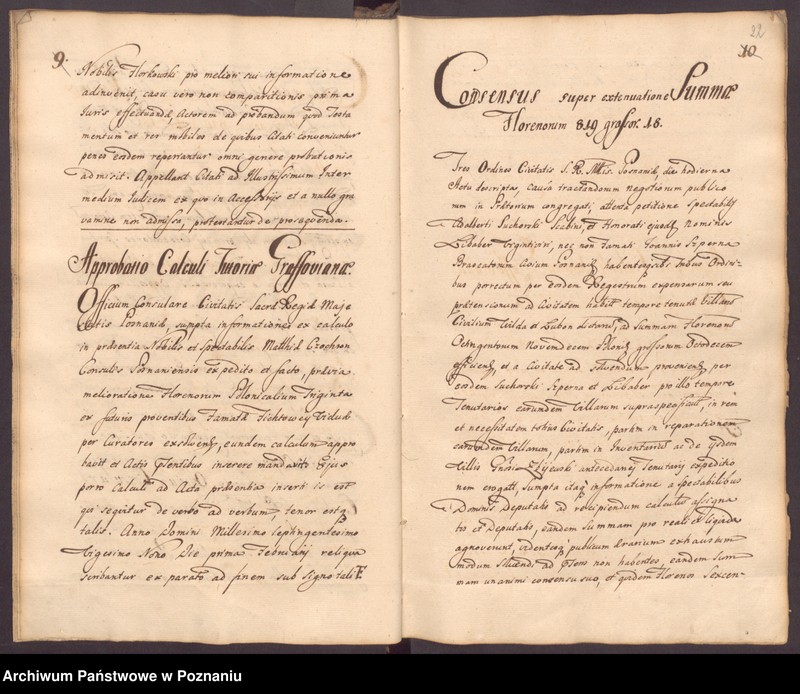 9.
Nobilis Horkowski pro meliori sui informatione
adinvenit, casu vero non comparitionis prima
Iuris effectuanda, Actorem ad probandum quod Testa
mentum et res mobiles de quibus Citati conveniuntur
penes eosdem reperiantur omni genere probationis
admisit. Appellant Citati ad Illustrissimum Inter
medium Iudicem ex quo in Accessorijs et a nullo gra
vamine non admissa, protestantur de prosequenda.
Approbatio Calculi Tutoriæ Grassovianæ.
Officium Consulare Civitatis Sacræ Regiæ Maje
statis Posnaniæ, sumpta informatione ex calculo
in præsentia Nobilis et Spectabilis Matthiæ Czochron
Consulis Posnaniensis expedito et facto, prævia
melioratione Florenorum Polonicalium Triginta
ex futuris proventibus famatæ Tichtowey Viduæ
per Curatores exolvend, eundem calculum appro
bavit et Actis ptentibus inserere mandavit. Ejus
porro Calculi ad Acta præsentia inserti is est
qui sequitur de verbo ad verbum, tenor estq
talis. Anno Domini Millesimo Septingentesimo
Vigesimo Nono Die prima Februarij reliqua
scribantur ex parato ad finem sub signo tali
22
10
Consensus super extenuatione Summæ
Florenorum 819 grossor. 18.
Tres Ordines Civitatis S. R. Mtis. Posnaniæ, die hodierna
Actu descripta, causa tractandorum negotiorum publico
rum in Prætorium congregati, attenta petitione Spectabilis
Adalberti Suchorski Scabini, et Honorati ejusdem Nominis
Libaber Vigintiviri, nec non famati Ioannis Siperna
Braxatorum Civium Posnaniæ habentes sibi Omnibus Ordini-
bus porrectum per eosdem Regestrum expensarum seu
prætensionum ad Civitatem habit tempore tenutæ Villarum
Civilium Wilda et Luboń, ad Summam Florenorum
Octingentorum Novendecem Polonic grossorum Octodecem
efficient, et a Civitate ad solvendum provenient per
eosdem Suchorski Siperna et Libaber pro illo tempore
Tenutarios earundem Villarum supraspecificat, in rem
et necessitatem totius Civitatis, partim in reparationem
earundem Villarum, partim in Inventarium ac de ijsdem
Villis Gnoso antecedanej Tenutarij expeditio
nem erogat, sumpta itaq informatione a spectabilibus
Dominis Deputatis ad recipiendum calculum assigna
tis et Deputatis, eandem Summam pro reali et liquida
agnoverunt, videntesq publicum Ærarium exhaustum
modum solvendi ad ptens non habentes, eandem Sum
mam unanimi consensu suo, et quidem Florenos Sexcen-
Archiwum Państwowe w Poznaniu